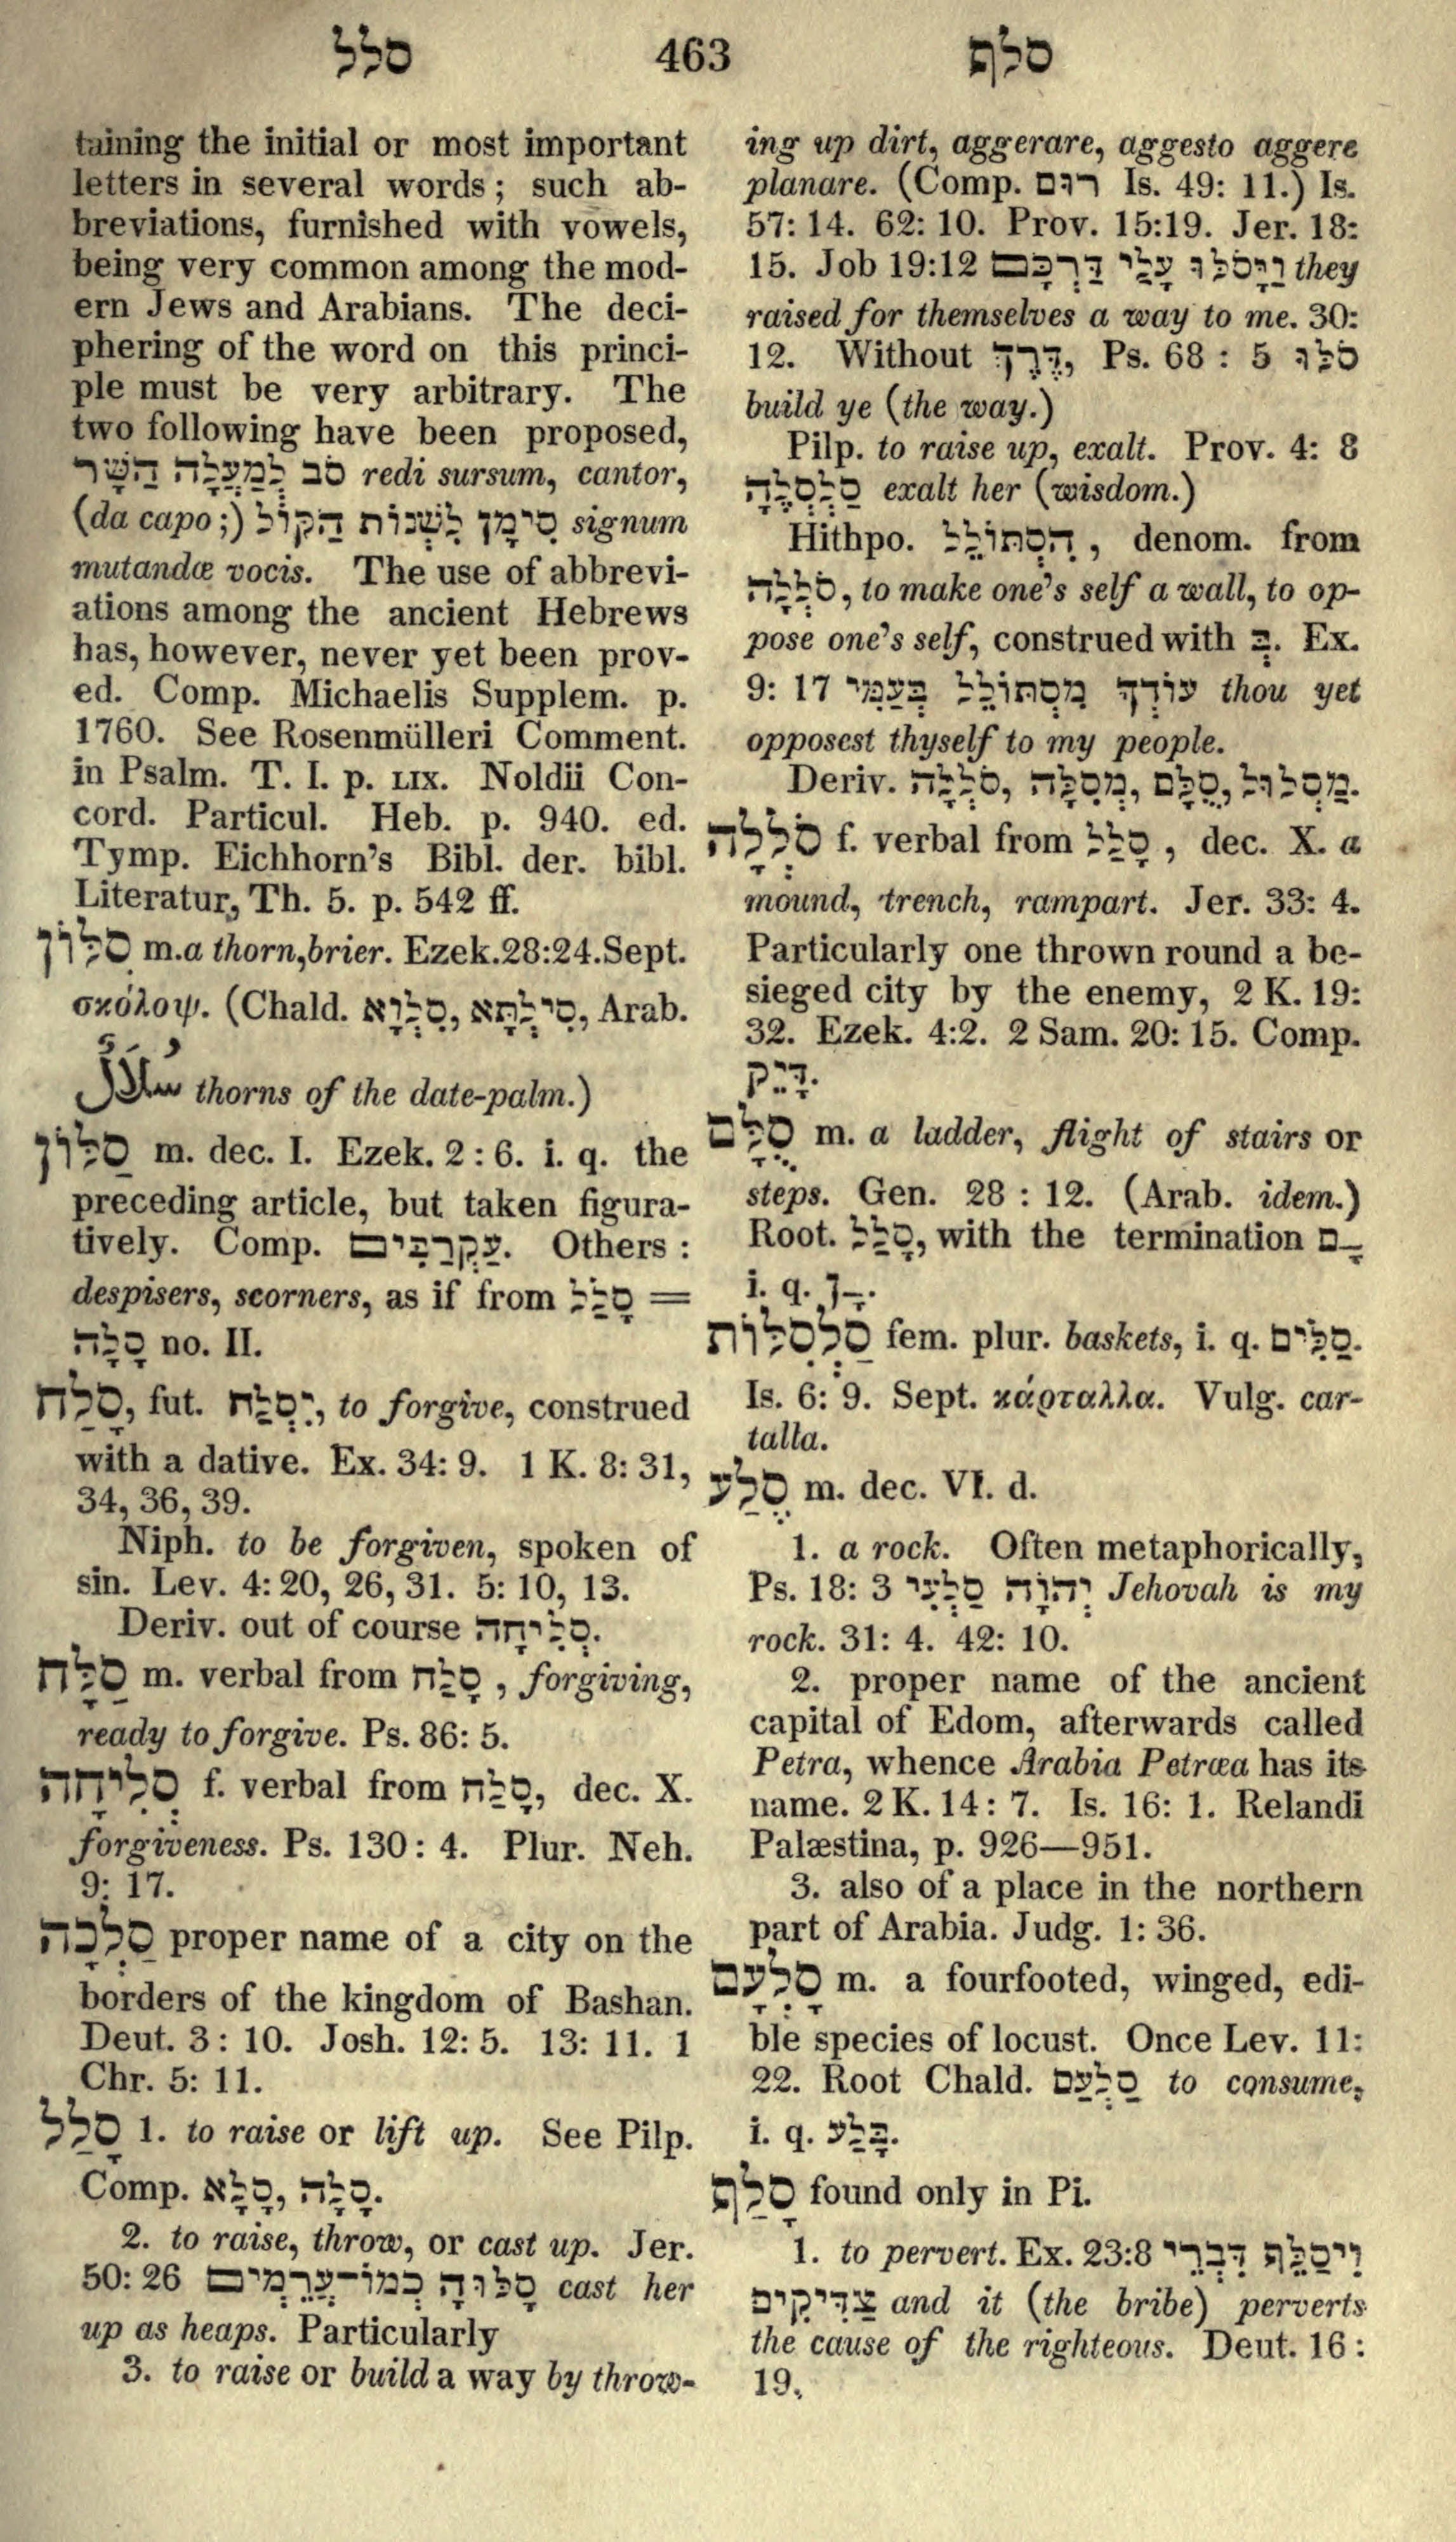 סלל 463 סלף
taining the initial or most important
letters in several words; such ab-
breviations, furnished with vowels,
being very common among the mod-
ern Jews and Arabians. The deci-
phering of the word on this princi-
ple must be very arbitrary. The
two following have been proposed,
סֹב לְמַעֲלָה הַשָּׁר redi sursum, cantor,
(da capo;) סִימָן לִשְׁנוֹת הַקּוֹל signum
mutandæ vocis. The use of abbrevi-
ations among the ancient Hebrews
has, however, never yet been prov-
ed. Comp. Michaelis Supplem. p.
1760. See Rosenmülleri Comment.
in Psalm. T. I. p. LIX. Noldii Con-
cord. Particul. Heb. p. 940. ed.
Tymp. Eichhorn's Bibl. der. bibl.
Literatur, Th. 5. p. 542 ff.
סִלּוֹן m. a thorn, brier. Ezek. 28:24. Sept.
σκόλοψ. (Chald. סִלְוָא, סִילְתָּא, Arab.
سُلَّاءٌ thorns of the date-palm.)
סַלּוֹן m. dec. I. Ezek. 2: 6. i. q. the
preceding article, but taken figura-
tively. Comp. עַקְרַבִּים. Others:
despisers, scorners, as if from סָלַל =
סָלָה no. II.
סָלַח, fut. יִסְלַח, to forgive, construed
with a dative. Ex. 34: 9. 1 K. 8: 31,
34, 36, 39.
Niph. to be forgiven, spoken of
sin. Lev. 4: 20, 26, 31. 5: 10, 13.
Deriv. out of course סְלִיחָה.
סַלָּח m. verbal from סָלַח, forgiving,
ready to forgive. Ps. 86: 5.
סְלִיחָה f. verbal from סָלַח, dec. X.
forgiveness. Ps. 130: 4. Plur. Neh.
9: 17.
סַלְכָה proper name of a city on the
borders of the kingdom of Bashan.
Deut. 3: 10. Josh. 12: 5. 13: 11. 1
Chr. 5: 11.
סָלַל 1. to raise or lift up. See Pilp.
Comp. סָלָא, סָלָה.
2. to raise, throw, or cast up. Jer.
50: 26 סָלּוּהָ כְמוֹ־עֲרֵמִים cast her
up as heaps. Particularly
3. to raise or build a way by throw-
ing up dirt, aggerare, aggesto aggere
planare. (Comp. רוּם Is. 49: 11.) Is.
57: 14. 62: 10. Prov. 15:19. Jer. 18:
15. Job 19:12 וַיָּסֹלּוּ עָלַי דַּרְכָּם they
raised for themselves a way to me. 30:
12. Without דֶּרֶךְ, Ps. 68: 5 סֹלּוּ
build ye (the way.)
Pilp. to raise up, exalt. Prov. 4: 8
סַלְסְלֶהָ exalt her (wisdom.)
Hithpo. הִסְתּוֹלֵל, denom. from
סֹלְלָה, to make one's self a wall, to op-
pose one's self, construed with בְּ. Ex.
9: 17 עוֹדְךָ מִסְתּוֹלֵל בְּעַמִּי thou yet
opposest thyself to my people.
Deriv. סֹלְלָה, מְסִלָּה, סֻלָּם, מַסְלוּל.
סֹלְלָה f. verbal from סָלַל, dec. X. a
mound, trench, rampart. Jer. 33: 4.
Particularly one thrown round a be-
sieged city by the enemy, 2 K. 19:
32. Ezek. 4:2. 2 Sam. 20: 15. Comp.
דָּיֵק.
סֻלָּם m. a ladder, flight of stairs or
steps. Gen. 28: 12. (Arab. idem.)
Root. סָלַל, with the termination ־ָם
i. q. ־ָן.
סַלְסִלּוֹת fem. plur. baskets, i. q. סַלִּים.
Is. 6: 9. Sept. κάρταλλα. Vulg. car-
talla.
סֶלַע m. dec. VI. d.
1. a rock. Often metaphorically,
Ps. 18: 3 יְהוָֹה סַלְעִי Jehovah is my
rock. 31: 4. 42: 10.
2. proper name of the ancient
capital of Edom, afterwards called
Petra, whence Arabia Petræa has its
name. 2 K. 14: 7. Is. 16: 1. Relandi
Palæstina, p. 926—951.
3. also of a place in the northern
part of Arabia. Judg. 1: 36.
סָלְעָם m. a fourfooted, winged, edi-
ble species of locust. Once Lev. 11:
22. Root Chald. סַלְעַם to consume,
i. q. בָּלַע.
סָלַף found only in Pi.
1. to pervert. Ex. 23:8 וִיסַלֵּף דִּבְרֵי
צַדִּיקִים and it (the bribe) perverts
the cause of the righteous. Deut. 16:
19.